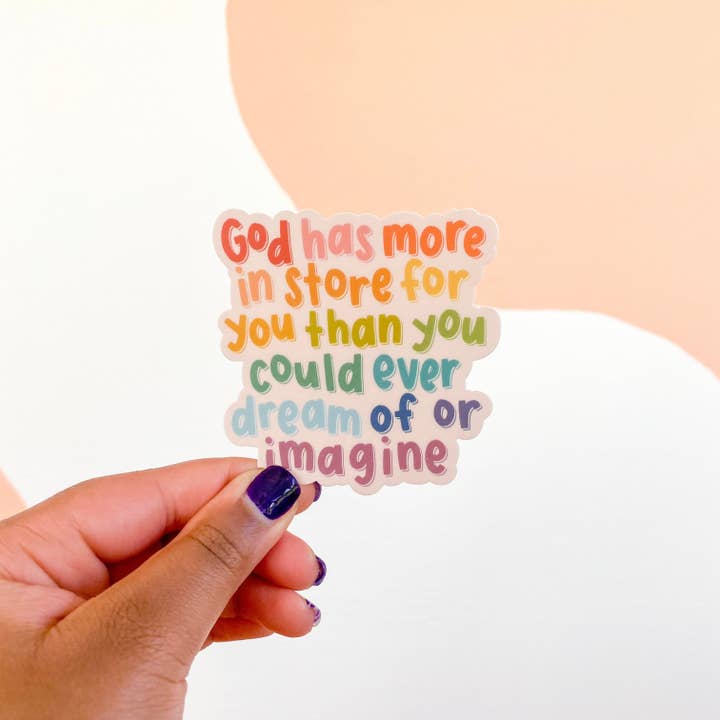 God has more
in store for
you than you
could ever
dream of or
imagine